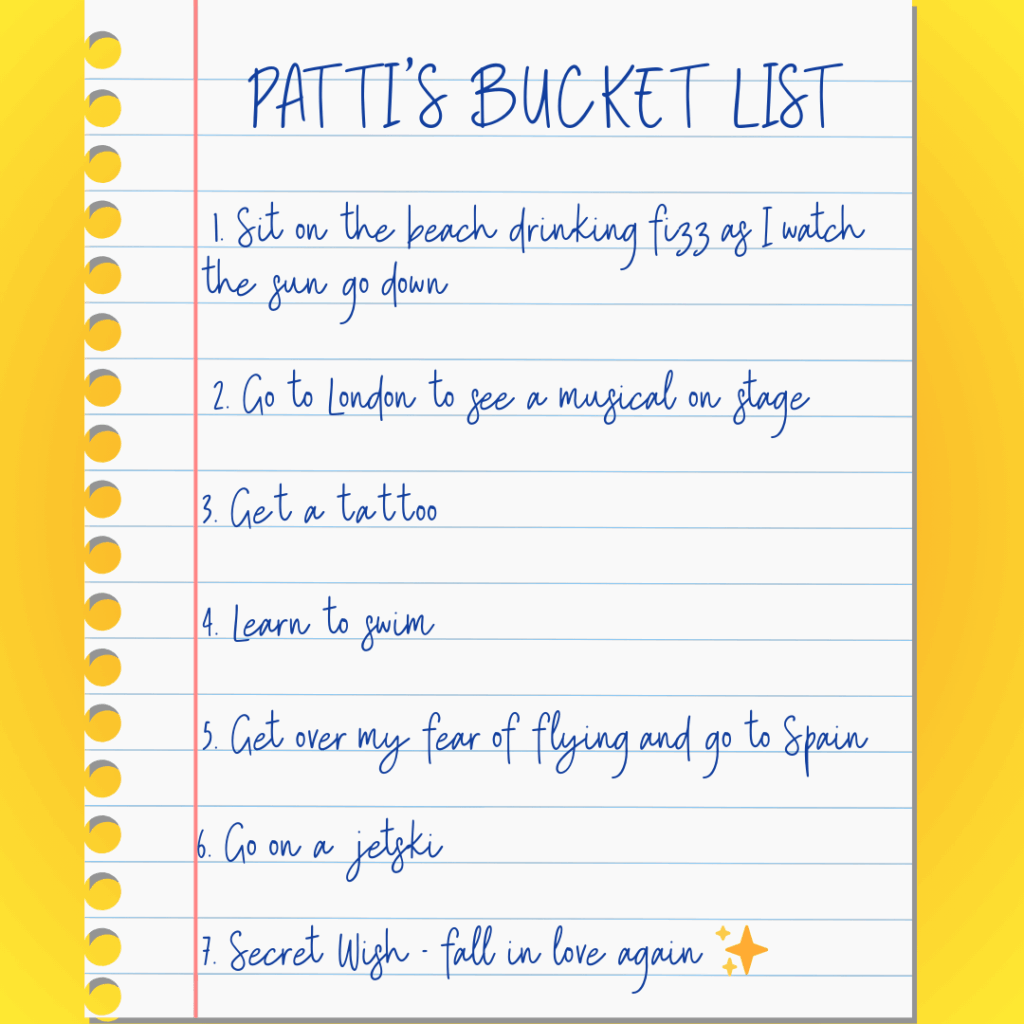 PATTI'S BUCKET LIST
1. Sit on the beach drinking fizz as I watch
the sun go down
2. Go to London to see a musical on stage
3. Get a tattoo
4. Learn to swim
5. Get over my fear of flying and go to Spain
6. Go on a jetski
7. Secret Wish - fall in love again ✨